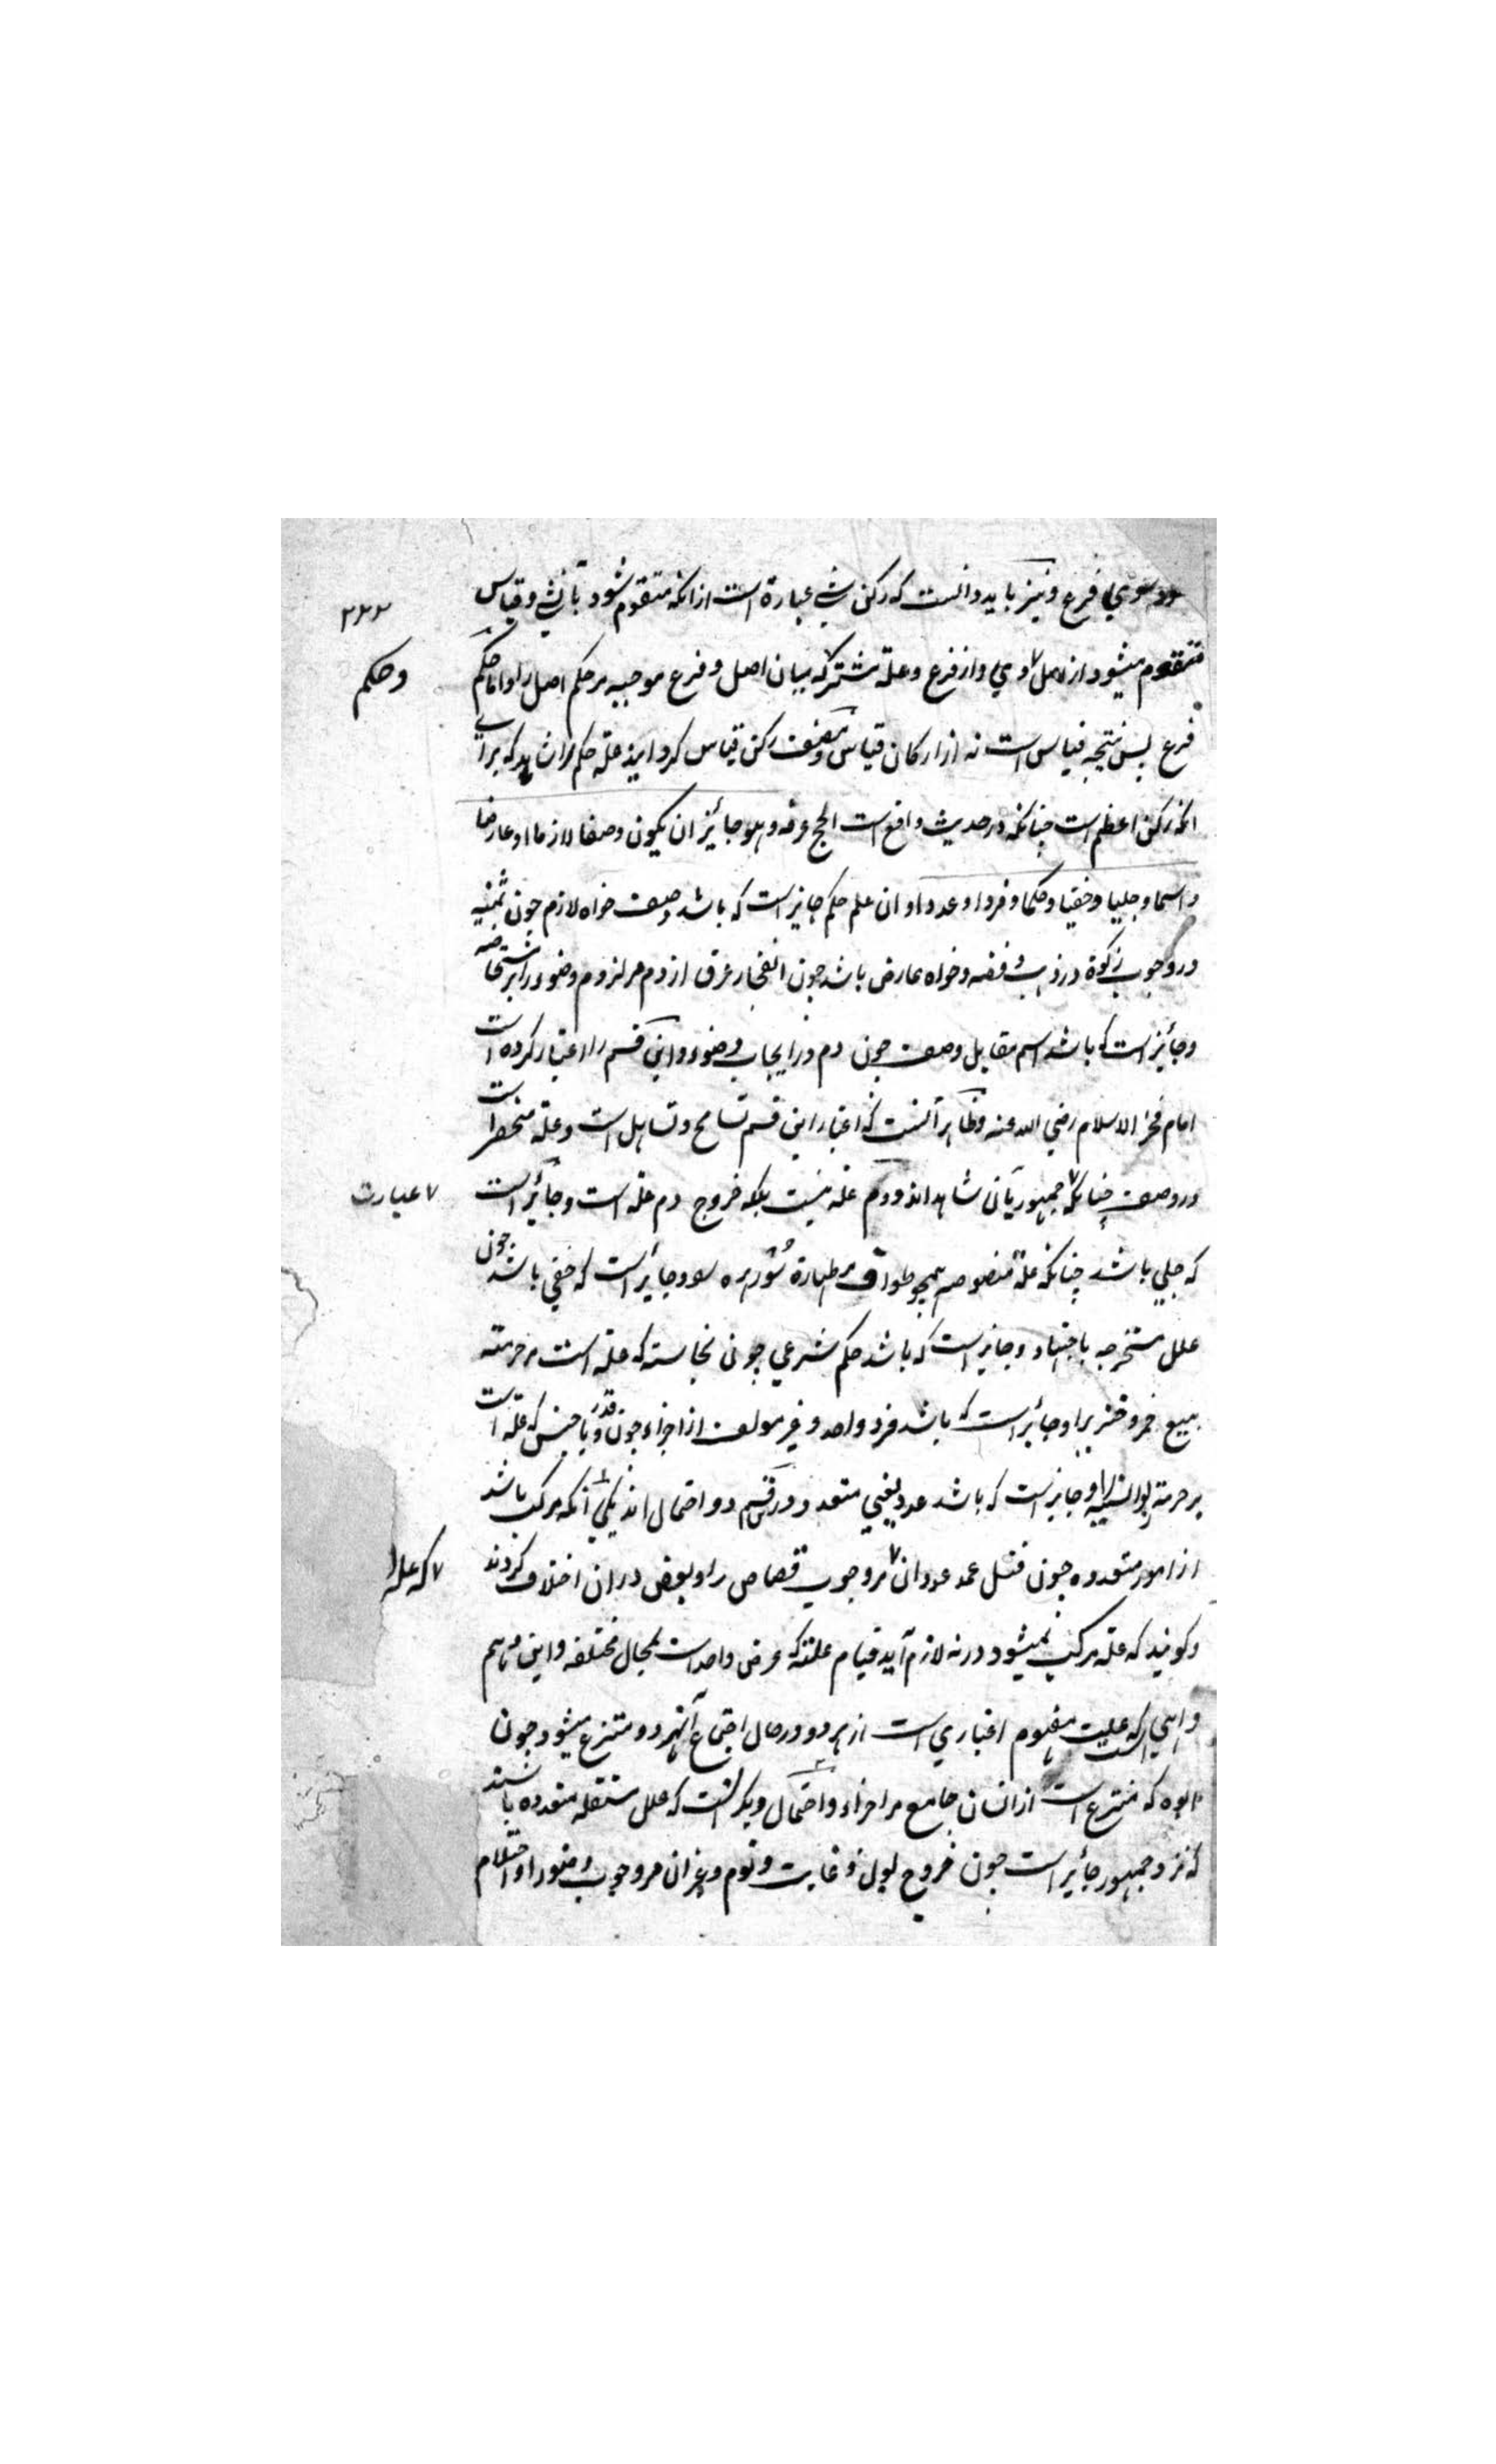 سوي فرع ونیز باید دانست که رکن شے عبارة است از انکه متقوم شود بآن شے وقیاس
۲۴۳
متقوم میشود از اصل وي واز فرع وعلة مشترکه میان اصل وفرع موجبه مر حکم اصل را واما حکم
وحکم
فرع پس نتیجه قیاس است نه از ارکان قیاس ومصنف رکن قیاس کردانید علة حکم را که براے
انکه رکن اعظم است چنانکه در حدیث واقع است الحج عرفه وهو جائز ان یکون وصفا لازما او عارضا
واسما وجلیا وخفیا وحکما وفردا وعددا وان علم حکم جایز است که باشد وصف خواه لازم چون ثمنیه
در وجوب زکوة در ذهب وفضه وخواه عارض باشد چون انفجار عرق از دم مر لزوم وضو را بر مستحاضه
وجائز است که باشد اسم مقابل وصف چون دم در ایجاب وضوء واین قسم را اعتبار کرده است
امام فخر الاسلام رضي الله عنه وظاهر آنست که اعتبار این قسم تسامح وتساهل است وعلة منحصر است
در وصف چنانکه جمهور بآن شاهد اند ودم علة نیست بلکه خروج دم علة است وجائز است
۷ عبارت
که جلي باشد چنانکه علة منصوصه همچو طواف مر طهارة سُؤر هره را وجایز است که خفي باشد چون
علل مستخرجه باجتهاد وجایز است که باشد حکم شرعي چون نجاسة که علة است مر حرمته
بیع خمر وخنزیر را وجائز است که باشد فرد واحد وغیر مولف از اجزاء چون قدر ویا جنس که علة است
بر حرمة ربوا النسیه را وجایز است که باشد عدد یعني متعدد ودر قسم دو احتمال اند یکي انکه مرکب باشد
از امور متعدده چون قتل عمد عدوان مر وجوب قصاص را وبعض دران اختلاف کردند
۷ که علة
وکویند که علة مرکب نمیشود ورنه لازم آید قیام علته که عرض واحد است بمحال مختلفه واین وهم
واهي است که علیت مفهوم اعتباري است از هر دو در حال اجتماع آنهر دو منتزع میشود چون
که منتزع است از انسان جامع مر اجزاء واحتمال دیکر انست که علل مستقله متعدده باشند
که نزد جمهور جائز است چون خروج بول وغایت ونوم وغیر ان مر وجوب وضو را واحتلام